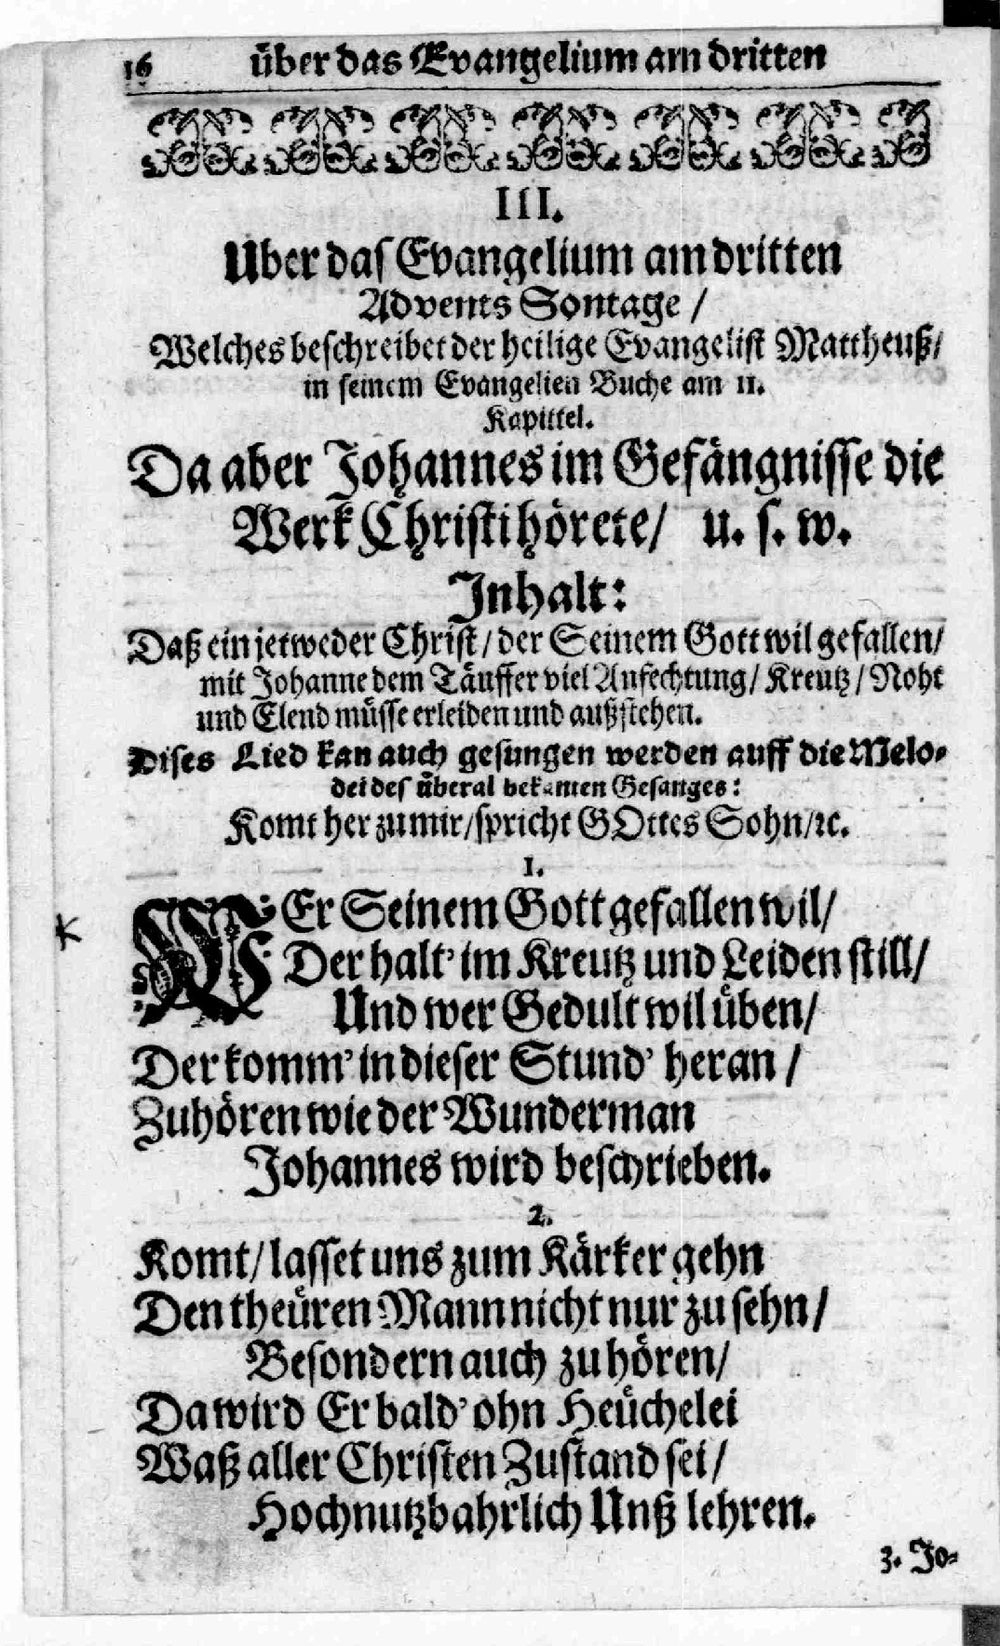 16 über das Evangelium am dritten
III.
Uber das Evangelium am dritten
Advents Sontage /
Welches beschreibet der heilige Evangelist Mattheuß/
in seinem Evangelien Buche am 11.
Kapittel.
Da aber Johannes im Gefängnisse die
Werk Christi hörete/ u. s. w.
Inhalt:
Daß ein jetweder Christ / der Seinem Gott wil gefallen/
mit Johanne dem Täuffer viel Anfechtung/ Kreutz / Noht
und Elend müsse erleiden und außstehen.
Dises Lied kan auch gesungen werden auff die Melo-
dei des überal bekanten Gesanges:
Komt her zu mir/spricht GOttes Sohn/ꝛc.
1.
WEr Seinem Gott gefallen wil/
Der halt' im Kreutz und Leiden still/
Und wer Gedult wil üben/
Der komm' in dieser Stund' heran /
Zuhören wie der Wunderman
Johannes wird beschrieben.
2.
Komt/ lasset uns zum Kärker gehn
Den theüren Mann nicht nur zu sehn/
Besondern auch zu hören/
Da wird Er bald' ohn Heüchelei
Waß aller Christen Zustand sei/
Hochnutzbahrlich Unß lehren.
3. Jo-